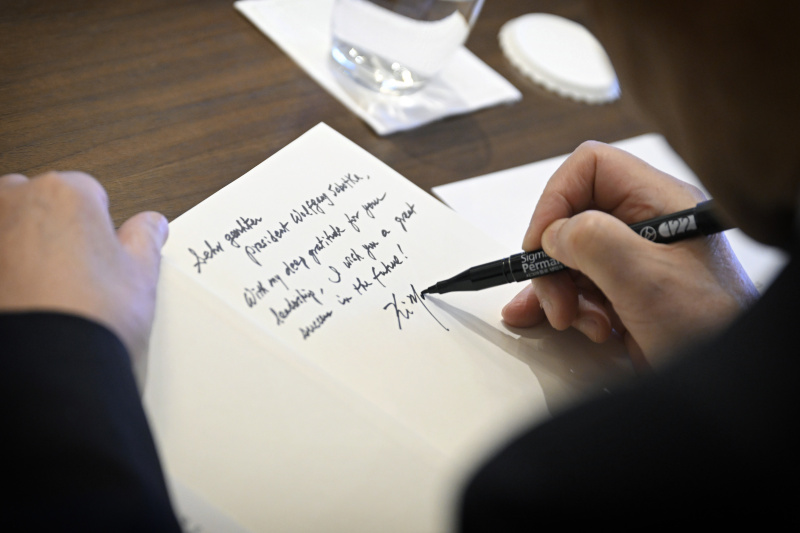 Sehr geehrter
President Wolfgang Sobotka,
With my deep gratitude for your
leadership, I wish you a great
success in the future!
Sigm
Perma